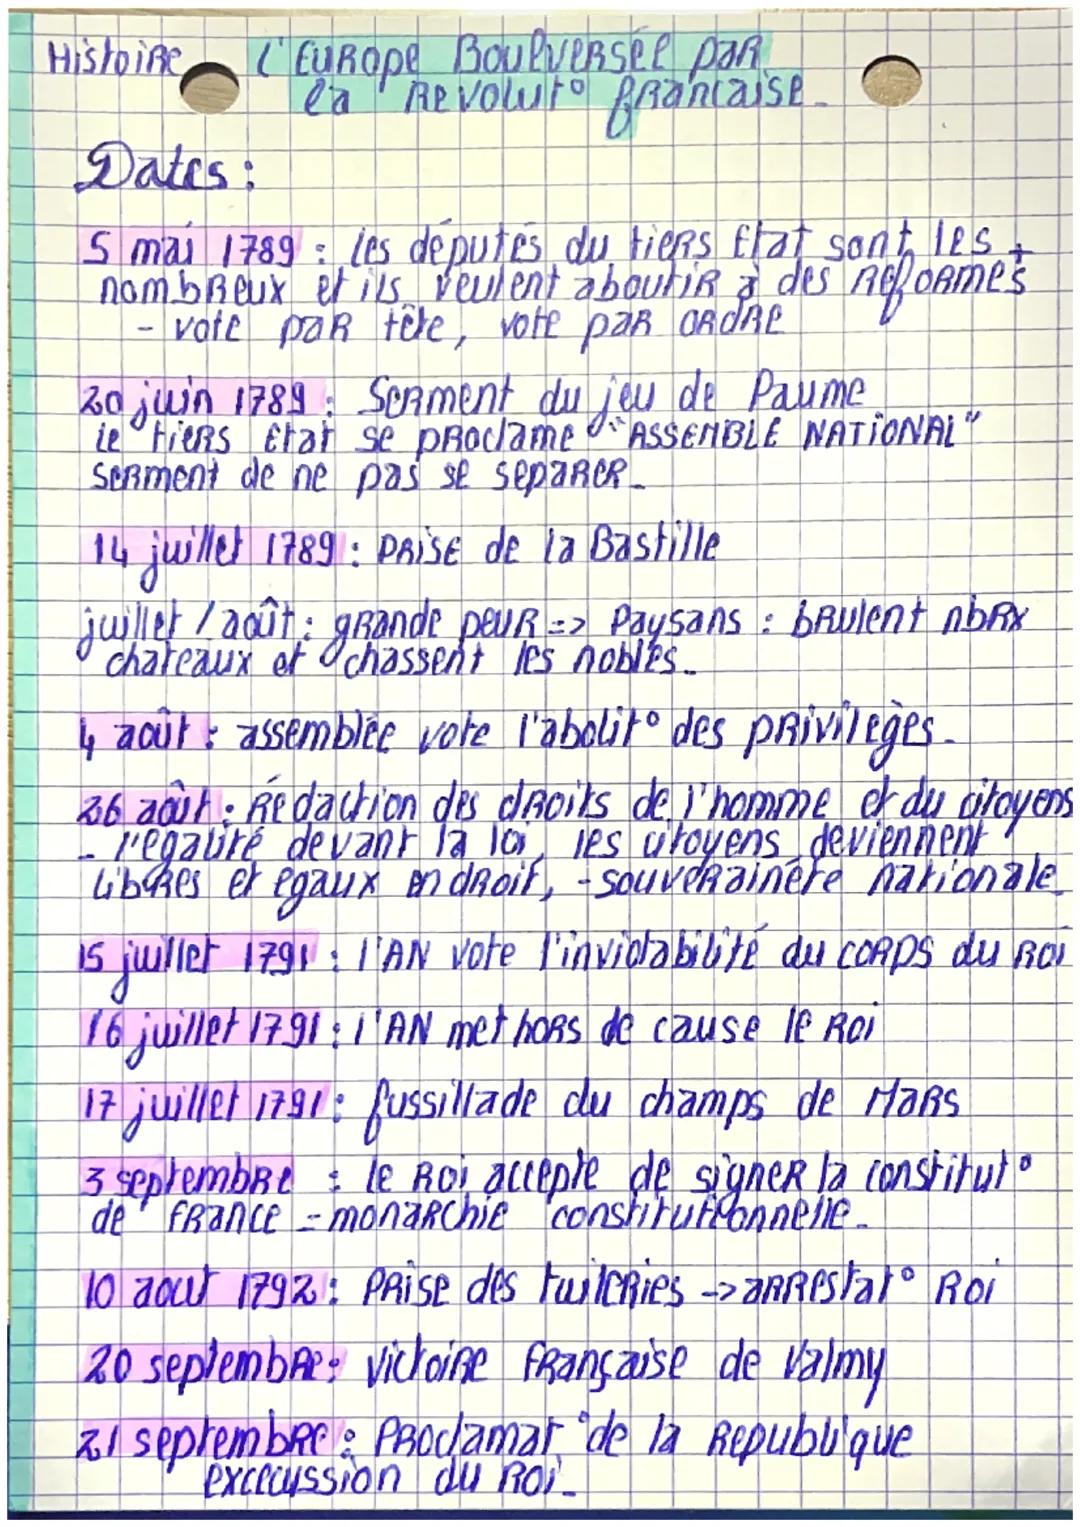 Histoire L'Europe Boulversée par
la Revolut° française.
Dates :
5 mai 1789 : les députés du tiers Etat sont les +
nombreux et ils veulent aboutir à des réformes
- vote par tête, vote par ordre
20 juin 1789 : Serment du jeu de Paume
le tiers Etat se proclame "ASSEMBLE NATIONAL"
serment de ne pas se separer.
14 juillet 1789 : prise de la Bastille
juillet / août : grande peur => Paysans : brulent nbrx
chateaux et chassent les nobles.
4 août : assemblée vote l'abolit° des privilegès.
26 août : Rédaction des droits de l'homme et du citoyens
- l'egalité devant la loi, les citoyens deviennent
libres et egaux en droit, - souverainete nationale
15 juillet 1791 : l'AN vote l'inviolabilité du corps du roi
16 juillet 1791 : l'AN met hors de cause le roi
17 juillet 1791 : fussillade du champs de Mars
3 septembre : le Roi accepte de signer la constitut°
de france = monarchie constitutionnelle.
10 aout 1792 : Prise des tuileries -> arrestat° Roi
20 septembre : victoire française de Valmy
21 septembre : Proclamat° de la Republique
excecussion du Roi.